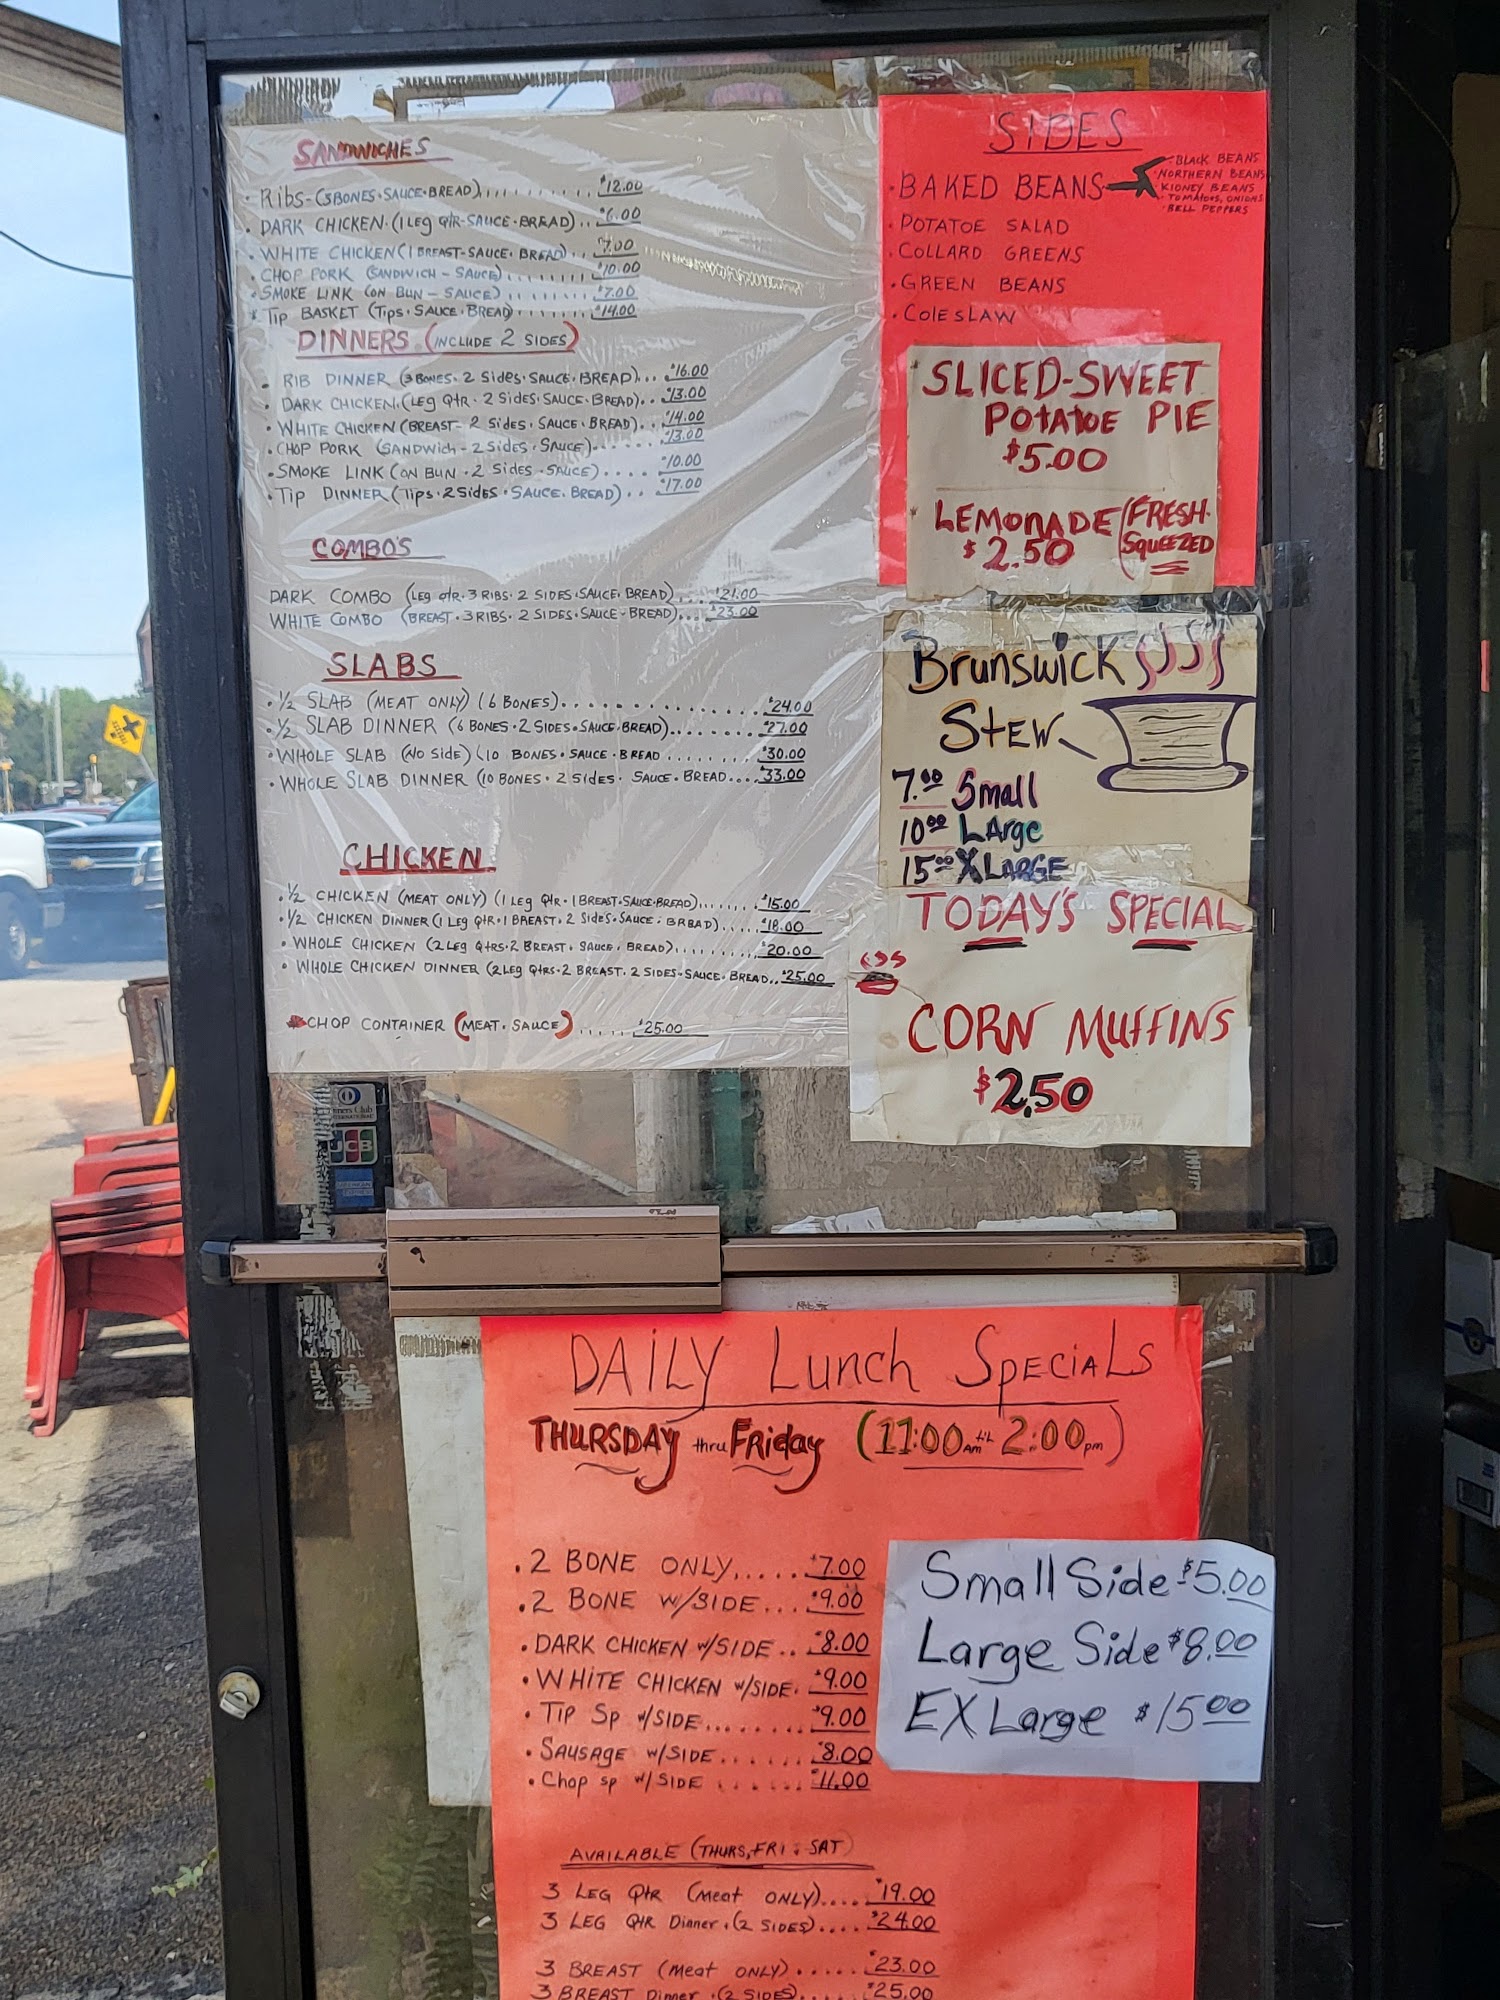 SANDWICHES
• Ribs-(3 BONES•SAUCE•BREAD)........... $12.00
• DARK CHICKEN•(1 Leg Qtr-SAUCE•BREAD).. $6.00
• WHITE CHICKEN (1 BREAST-SAUCE•BREAD)... $7.00
• CHOP PORK (SANDWICH-SAUCE)......... $10.00
• SMOKE LINK (ON BUN-SAUCE)......... $7.00
• Tip BASKET (Tips•SAUCE•BREAD)........ $14.00
DINNERS (INCLUDE 2 SIDES)
• RIB DINNER (3 BONES•2 Sides•SAUCE•BREAD)... $16.00
• DARK CHICKEN•(Leg Qtr•2 SIDES•SAUCE•BREAD).. $13.00
• WHITE CHICKEN (BREAST-2 SIDES•SAUCE•BREAD).... $14.00
• CHOP PORK (SANDWich-2 Sides•SAUCE)...... $13.00
• SMOKE LINK (ON BUN•2 Sides•SAUCE).... $10.00
• Tip DINNER (Tips•2 Sides•SAUCE•BREAD).. $17.00
COMBO'S
DARK COMBO (Leg qtr•3 RIBS•2 SIDES•SAUCE•BREAD).... $21.00
WHITE COMBO (BREAST•3 RIBS•2 SIDES•SAUCE-BREAD).... $23.00
SLABS
• ½ SLAB (MEAT ONLY) (6 BONES)................ $24.00
• ½ SLAB DINNER (6 BONES•2 SIDES•SAUCE•BREAD)....... $27.00
• WHOLE SLAB (No SIDE) (10 BONES•SAUCE•BREAD ........ $30.00
• WHOLE SLAB DINNER (10 BONES•2 SIdES•SAUCE•BREAD.... $33.00
CHICKEN
• ½ CHICKEN (MEAT ONLY) (1 Leg Qtr•1 BREAST•SAUCE•BREAD)....... $15.00
• ½ CHICKEN DINNER (1 Leg Qtr•1 BREAST•2 SidES•SAUCE•BREAD)..... $18.00
• WHOLE CHICKEN (2 Leg Qtrs•2 BREAST•SAUCE•BREAD)........... $20.00
• WHOLE CHICKEN DINNER (2 Leg Qtrs•2 BREAST•2 SIDES-SAUCE•BREAD.. $25.00
CHOP CONTAINER (MEAT•SAUCE)..... $25.00
SIDES
• BAKED BEANS
• BLACK BEANS
• NORTHERN BEANS
• KIDNEY BEANS
• TOMATOES, ONIONS
• BELL PEPPERS
• POTATOE SALAD
• COLLARD GREENS
• GREEN BEANS
• ColeSLAW
SLICED-SWEET
POTATOE PIE
$5.00
LEMONADE (FRESH-
SQUEEZED
$2.50
Brunswick
StEW
7.00 Small
10.00 LArge
15.00 X LARGE
TODAY'S SPECIAL
CORN MUFFINS
$2.50
Diners Club
INTERNATIONAL
JCB
AMERICAN
EXPRESS
DAiLY Lunch SpeciaLs
THURSDAY thru Friday (11:00 Am til 2:00 pm)
• 2 BONE ONLY..... $7.00
• 2 BONE W/SIDE... $9.00
• DARK CHICKEN W/SIDE.. $8.00
• WHITE CHICKEN W/SIDE. $9.00
• Tip Sp W/SIDE........ $9.00
• SAUSAGE W/SIDE...... $8.00
• Chop sp W/SIDE ...... $11.00
Small Side $5.00
Large Side $8.00
EX Large $15.00
AVAILABLE (THURS, FRI & SAT)
3 LEG Qtr (Meat ONLY).... $19.00
3 LEG Qtr Dinner•(2 SIDES).... $24.00
3 BREAST (Meat ONLY)...... $23.00
3 BREAST Dinner•(2 SIDES)..... $25.00